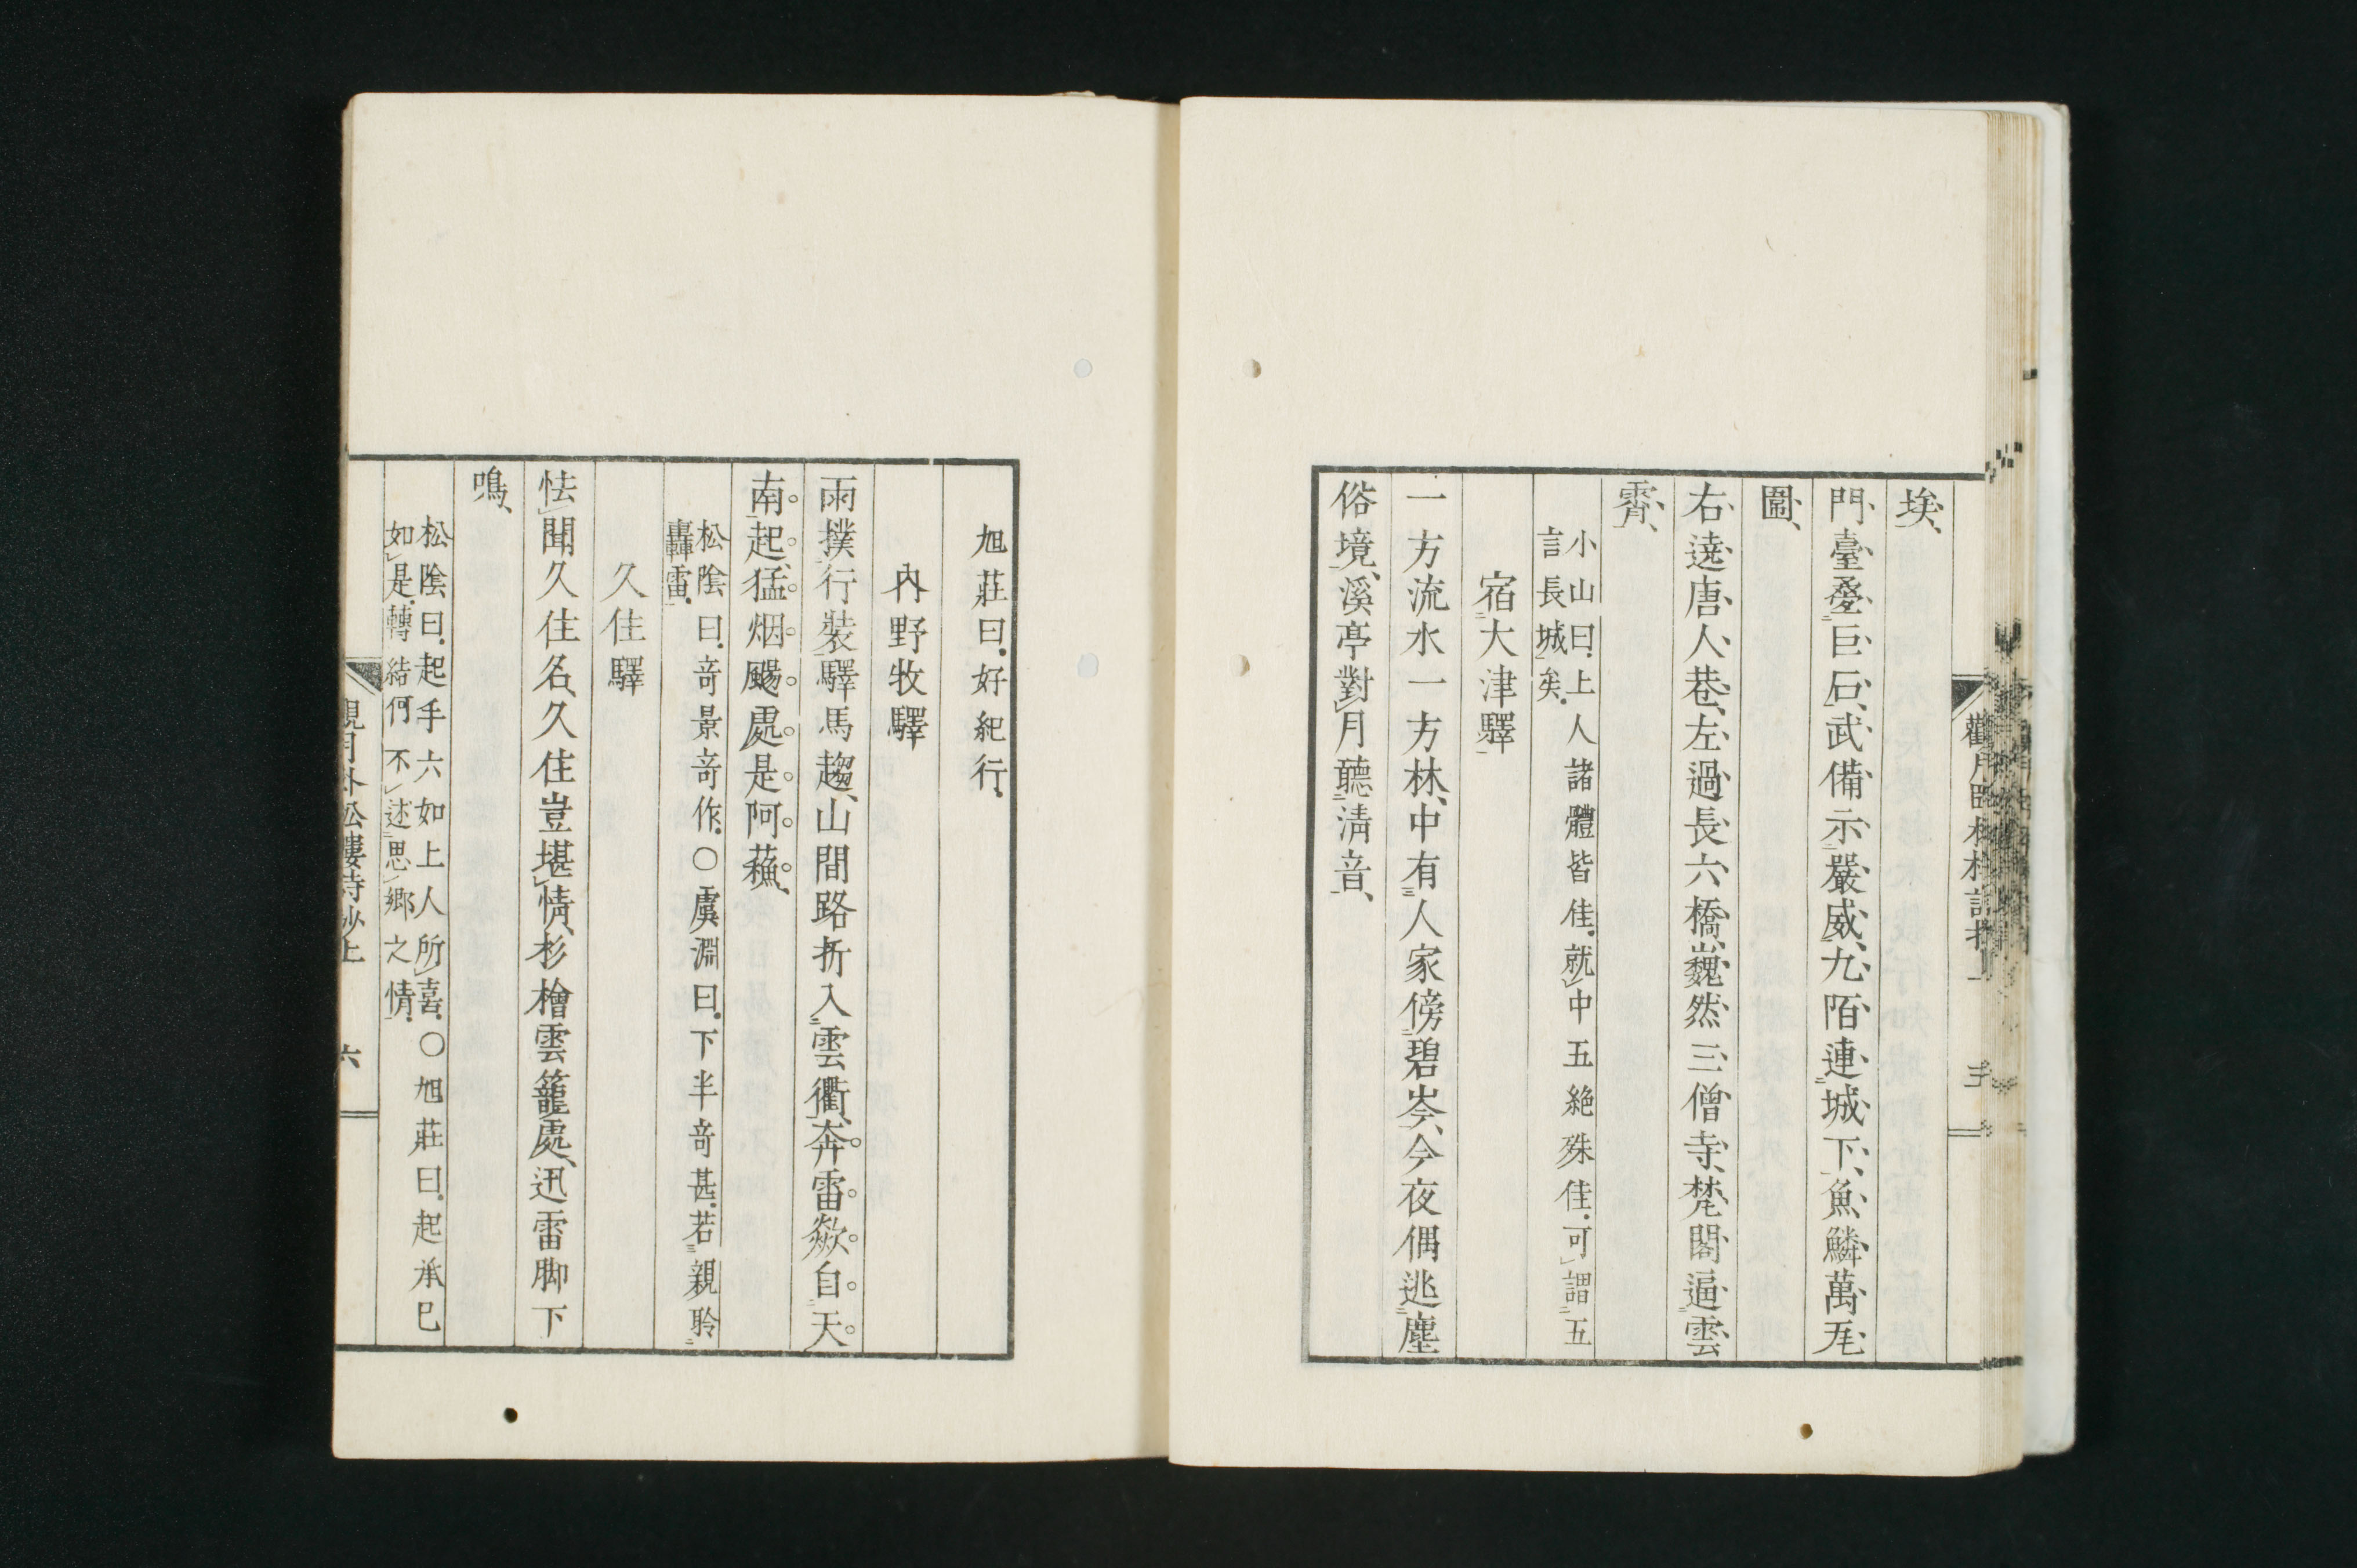 埃、
門臺疊巨石、武備示嚴威、九陌連城下、魚鱗萬瓦
圍、
右遶唐人巷、左過長六橋、巍然三僧寺、梵閣逼雲
霄、
小山曰、上人諸體皆佳、就中五絶殊佳、可謂五
言長城矣、
宿大津驛
一方流水一方林、中有人家傍碧岑、今夜偶逃塵
俗境、溪亭對月聽淸音、
旭莊曰、好紀行、
內野牧驛
雨撲行裝驛馬趨、山間路折入雲衢、奔雷欻自天
南起、猛烟颺處是阿蘓、
松陰曰、竒景竒作、○虞淵曰、下半竒甚、若親聆
轟雷、
久住驛
怯聞久住名、久住豈堪情、杉檜雲籠處、迅雷脚下
鳴、
松陰曰、起手六如上人所喜、○旭莊曰、起承已
如是、轉結何不述思鄉之情、
六